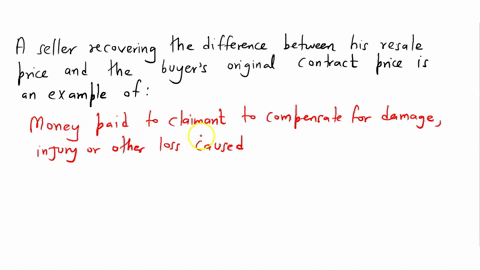 A seller recovering the difference between his resale
price and the buyer's original contract price is
an example of:
Money paid to claimant to compensate for damage,
injury or other loss caused